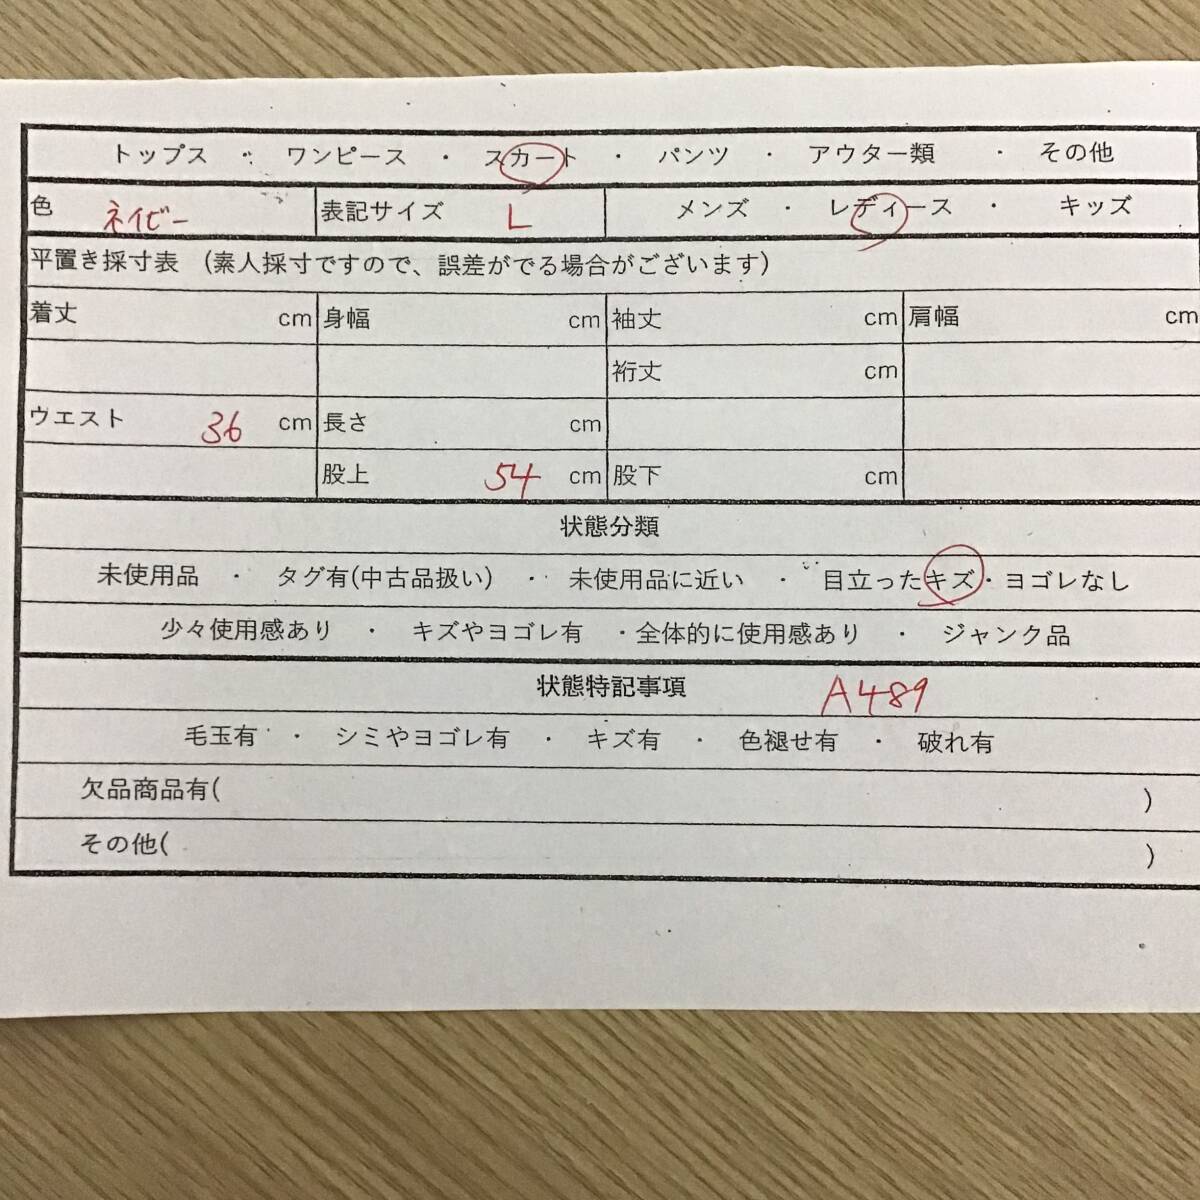 トップス ・ ワンピース ・ スカート ・ パンツ ・ アウター類 ・ その他
色 ネイビー 表記サイズ L メンズ ・ レディース ・ キッズ
平置き採寸表 （素人採寸ですので、誤差がでる場合がございます）
着丈 cm 身幅 cm 袖丈 cm 肩幅 cm
裄丈 cm
ウエスト 36 cm 長さ cm
股上 54 cm 股下 cm
状態分類
未使用品 ・ タグ有(中古品扱い) ・ 未使用品に近い ・ 目立ったキズ・ヨゴレなし
少々使用感あり ・ キズやヨゴレ有 ・全体的に使用感あり ・ ジャンク品
状態特記事項 A489
毛玉有 ・ シミやヨゴレ有 ・ キズ有 ・ 色褪せ有 ・ 破れ有
欠品商品有( )
その他( )